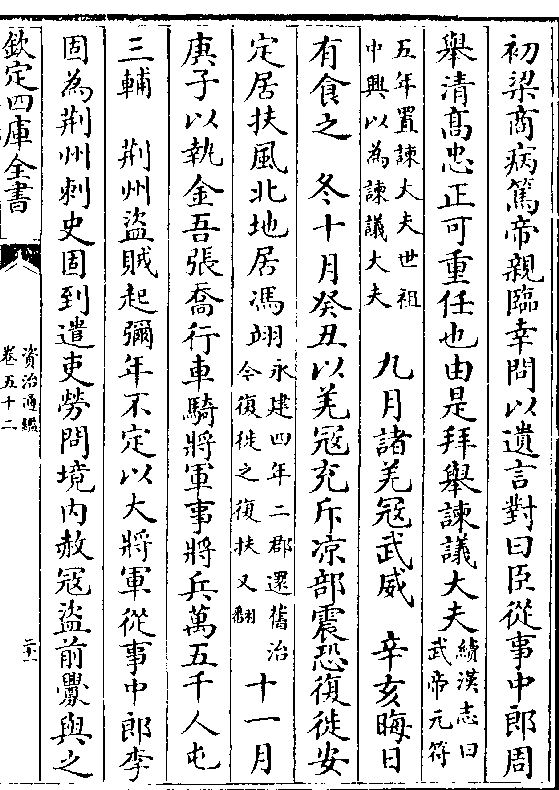 初梁商病篤帝親臨幸問以遺言對曰臣從事中郎周
舉清髙忠正可重任也由是拜舉諫議大夫續漢志曰武帝元符
五年置諫大夫世祖中興以為諫議大夫 九月諸羌寇武威 辛亥晦日
有食之 冬十月癸丑以羌寇充斥凉部震恐復徙安
定居扶風北地居馮翊永建四年二郡還舊治今復徙之復扶又翻 十一月
庚子以執金吾張喬行車騎將軍事將兵萬五千人屯
三輔 荆州盜賊起彌年不定以大將軍從事中郎李
固為荆州刺史固到遣吏勞問境内赦寇盜前釁與之
欽定四庫全書
資治通鑑
卷五十二